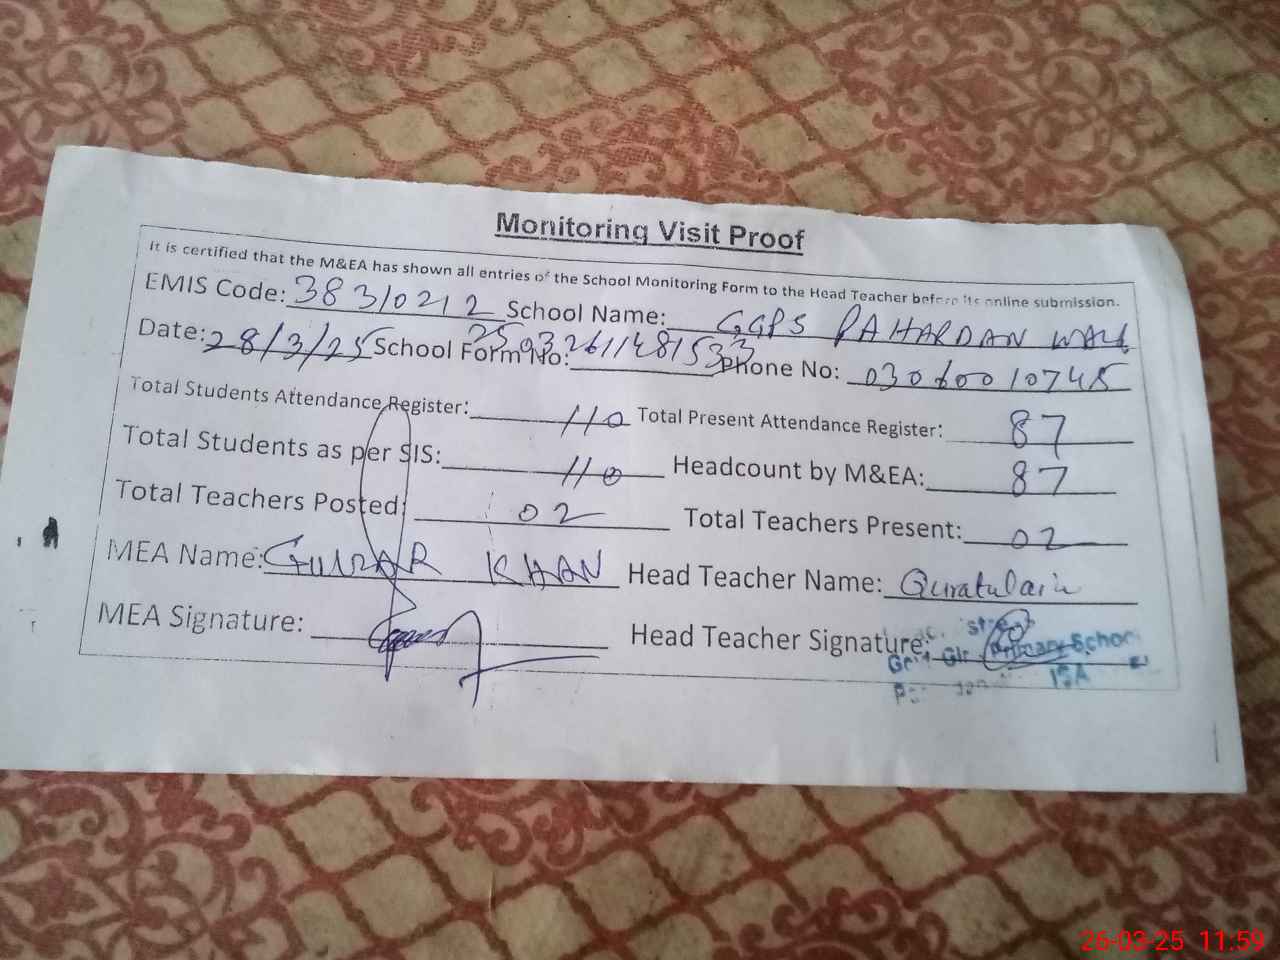 Monitoring Visit Proof
It is certified that the M&EA has shown all entries of the School Monitoring Form to the Head Teacher before its online submission.
EMIS Code: 38310212 School Name: GGPS PAHARDAN WALI
Date: 28/3/25 School Form No: Phone No: 03060010745
Total Students Attendance Register: 110 Total Present Attendance Register: 87
Total Students as per SIS: 110 Headcount by M&EA: 87
Total Teachers Posted: 02 Total Teachers Present: 02
MEA Name: GULZAR KHAN Head Teacher Name: Quratulain
MEA Signature: Head Teacher Signature:
Primary School
26-03-25 11:59